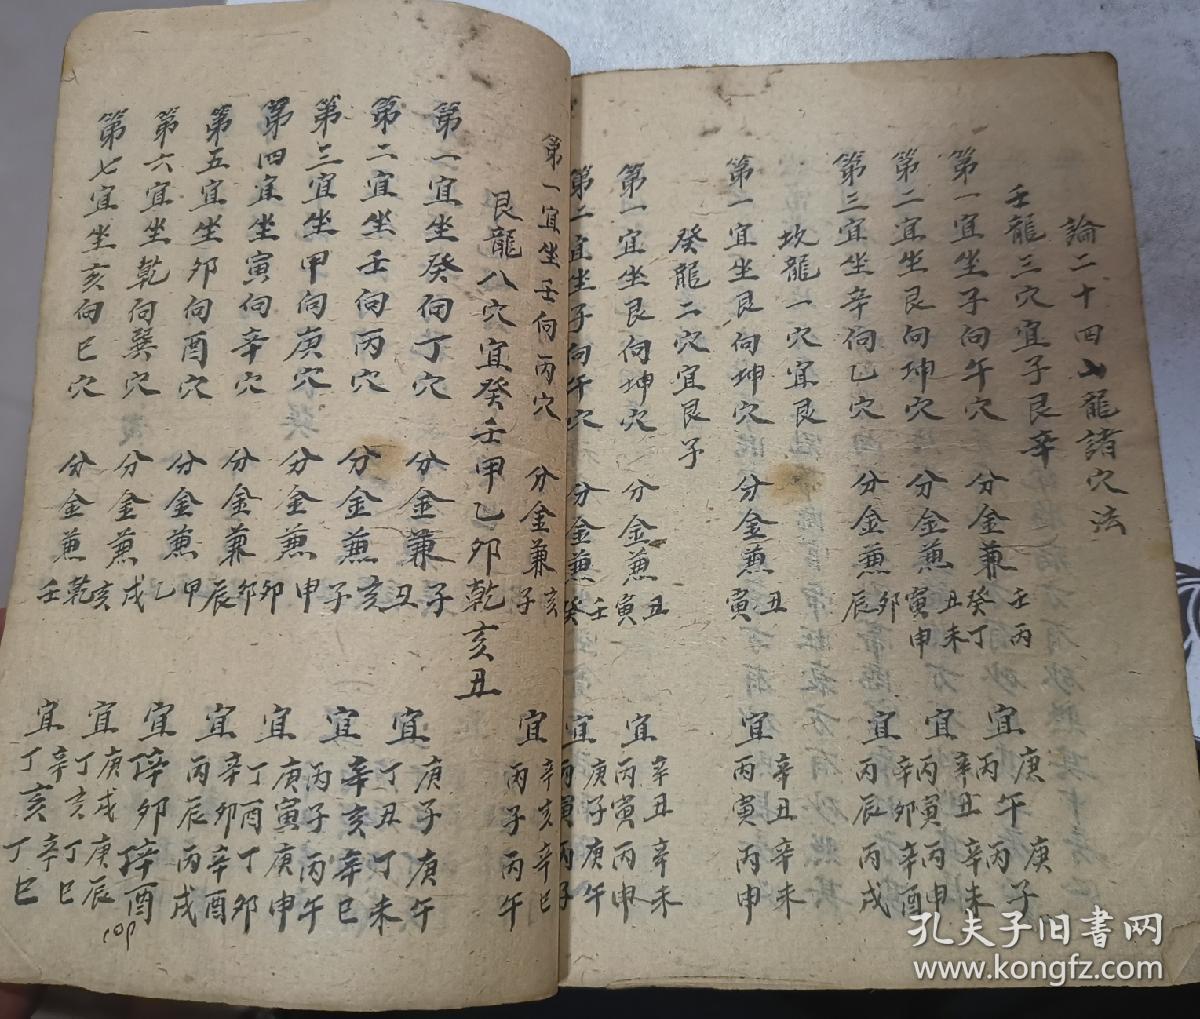 論二十四山龍諸穴法
壬龍三穴宜子艮辛
第一宜坐子向午穴 分金兼壬丙 宜庚午 庚子
第二宜坐艮向坤穴 分金兼丑未癸丁 宜辛丑 辛未
第三宜坐辛向乙穴 分金兼卯辰 宜辛卯丙辰 辛酉丙戌
坎龍一穴宜艮
第一宜坐艮向坤穴 分金兼丑寅 宜辛丑辛未丙寅丙申
癸龍二穴宜艮子
第一宜坐艮向坤穴 分金兼丑寅 宜辛丑辛未丙寅丙申
第二宜坐子向午穴 分金兼壬癸 宜庚子庚午
第一宜坐壬向丙穴 分金兼亥子 宜辛亥辛巳丙子丙午
艮龍八穴宜癸壬甲乙卯乾亥丑
第一宜坐癸向丁穴 分金兼子丑 宜庚子庚午丁丑丁未
第二宜坐壬向丙穴 分金兼亥子 宜辛亥辛巳丙子丙午
第三宜坐甲向庚穴 分金兼申卯 宜庚寅庚申丁酉丁卯
第四宜坐寅向辛穴 分金兼卯辰 宜辛卯辛酉丙辰丙戌
第五宜坐卯向酉穴 分金兼甲乙 宜辛卯辛酉
第六宜坐乾向巽穴 分金兼戌亥 宜庚戌庚辰丁亥丁巳
第七宜坐亥向巳穴 分金兼乾壬 宜辛亥辛巳丁亥丁巳
孔夫子旧书网
www.kongfz.com